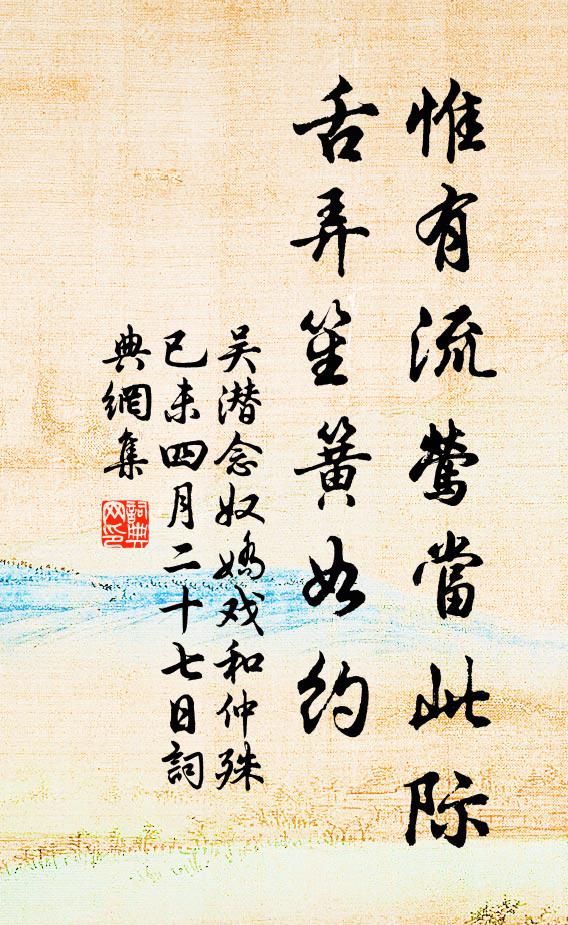 惟有流莺當此际
舌弄笙簧如约
吴潜念奴娇戏和仲殊
已未四月二十七日詞
典網集
詞典网印